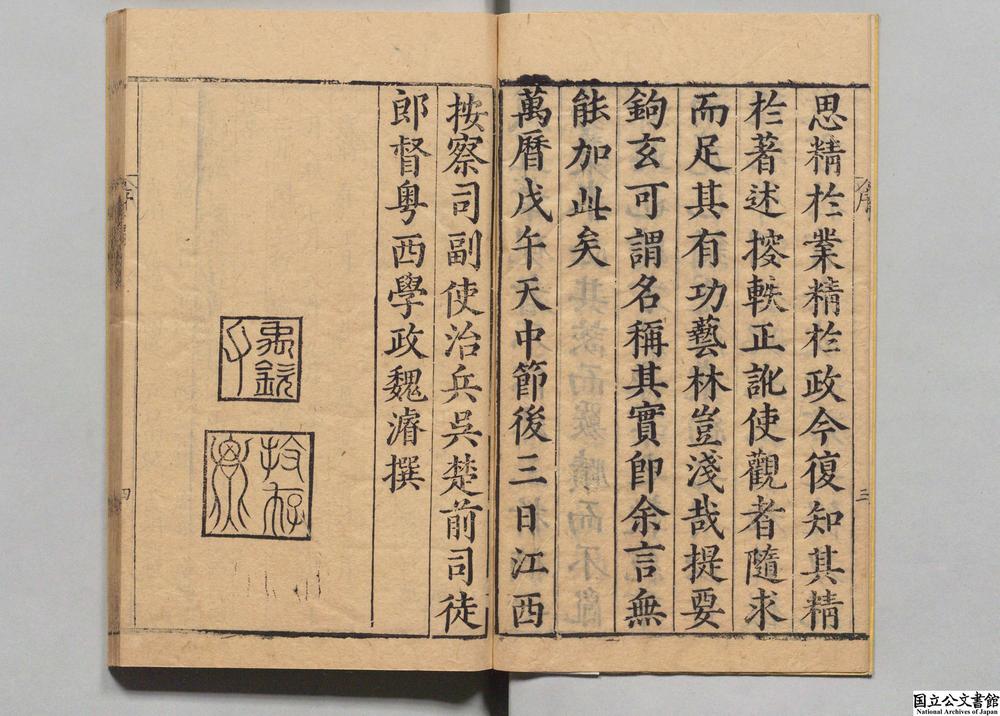 思精於業精於政今復知其精
於著述㨔軼正訛使觀者隨求
而足其有功藝林豈淺哉提要
鉤玄可謂名稱其實即余言無
能加此矣
萬曆戊午天中節後三日江西
按察司副使治兵吳楚前司徒
郎督粵西學政魏濬撰
序
三
序
四
禹欽
父
国立公文書館
National Archives of Japan